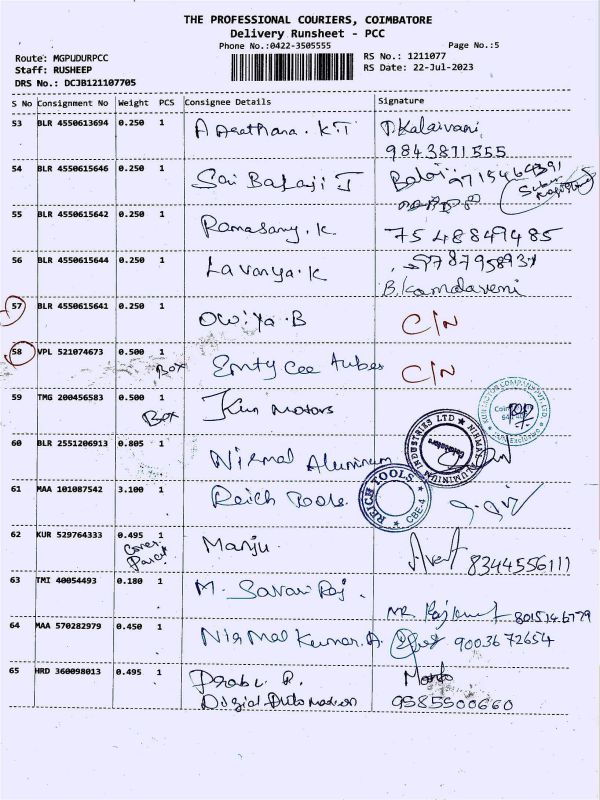 THE PROFESSIONAL COURIERS, COIMBATORE
Delivery Runsheet - PCC
Phone No.:0422-3505555 Page No.:5
Route: MGPUDURPCC RS No.: 1211077
Staff: RUSHEEP RS Date: 22-Jul-2023
DRS No.: DCJB121107705
S No Consignment No Weight PCS Consignee Details Signature
53 BLR 4550613694 0.250 1 A Arathana. K.T T. Kalaivani
9843871555
54 BLR 4550615646 0.250 1 Sai Balaji J Balaji 9715464391
55 BLR 4550615642 0.250 1 Ramasamy. K. 7548849485
56 BLR 4550615644 0.250 1 Lavanya. K
B. Kamalaveni
57 BLR 4550615641 0.250 1 Owiya. B C/N
58 VPL 521074673 0.500 1 Emty Cee Tubes C/N
Box
59 TMG 200456583 0.500 1 Kun Motors
Box
60 BLR 2551206913 0.805 1 Nirmal Aluminum
NIRMAL ALUMINIUM INDUSTRIES LTD
Coimbatore
61 MAA 101087542 3.100 1 Reich Tools.
REICH TOOLS
CBE-4
62 KUR 529764333 0.495 1 Manju. 8344556111
Cover
63 TMI 40054493 0.180 1 M. Savari Raj.
64 MAA 570282979 0.450 1 Nirmal Kumar. A 9003672654
65 HRD 360098013 0.495 1 Prabu R.
Digial Automation 9585500660